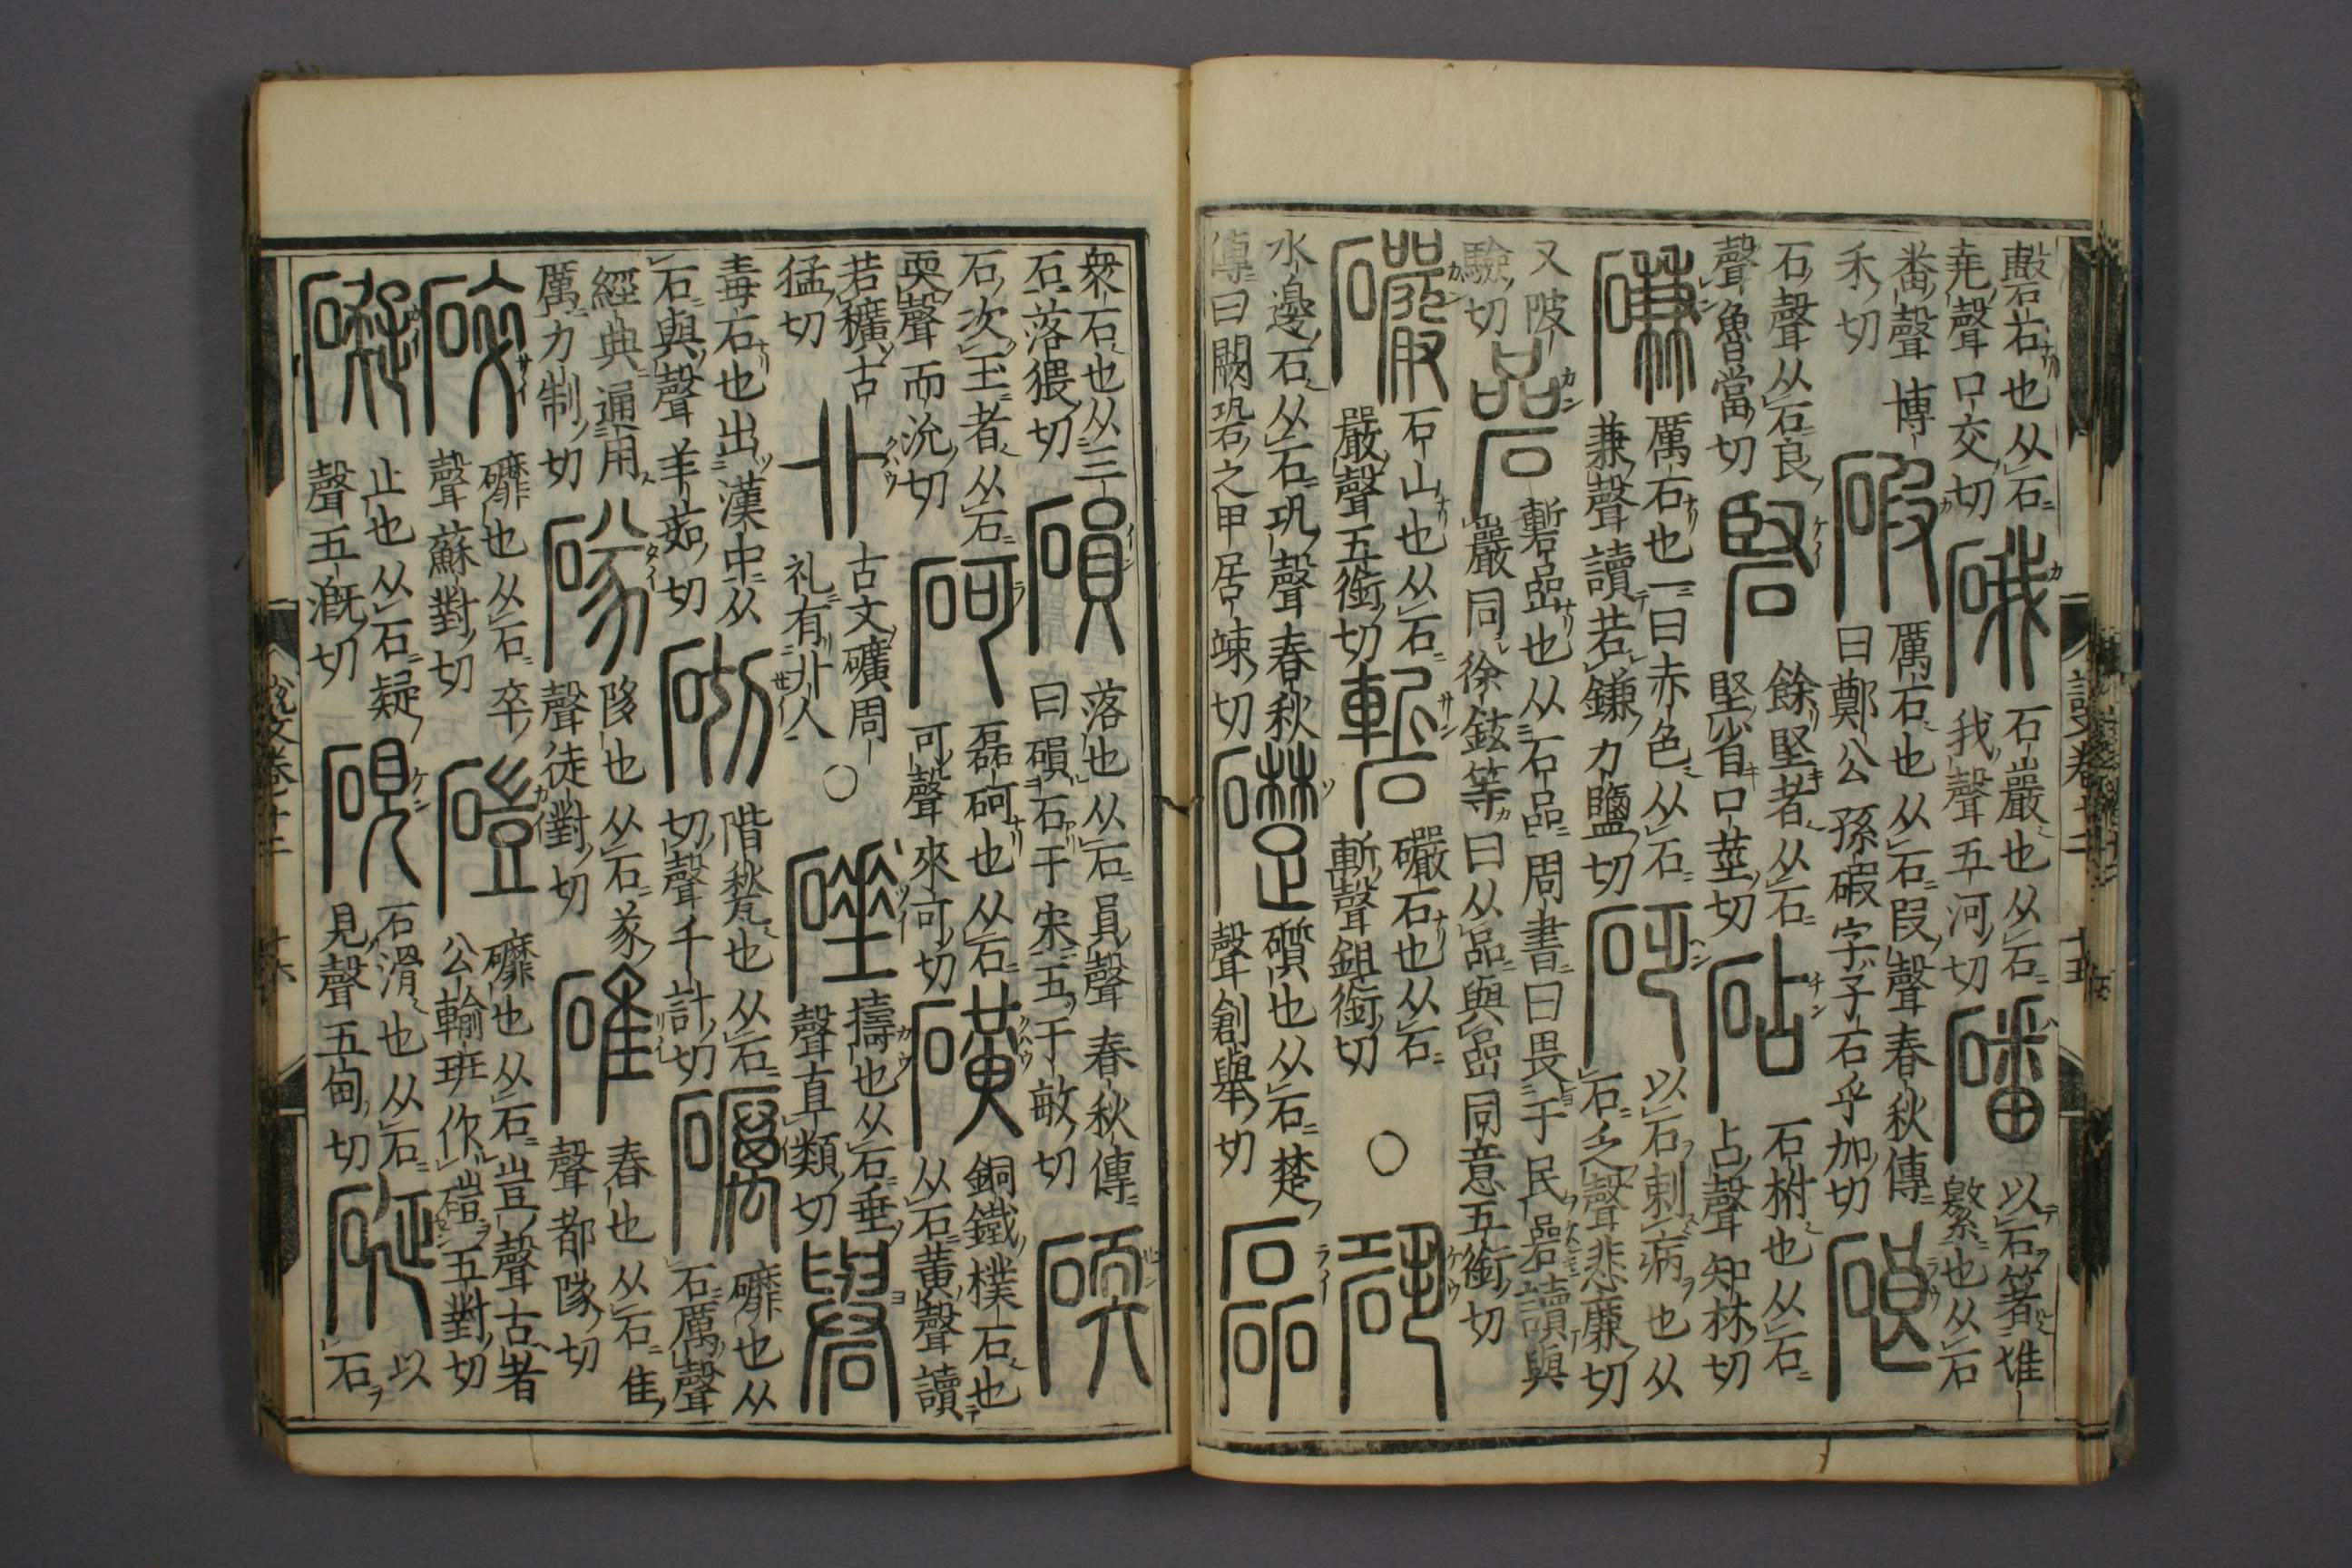 說文卷十二 十五
磬石也从石堯聲口交切 硪 石巖也从石我聲五河切 磻 以石箸隿繳也从石
番聲博禾切 碬 厲石也从石叚聲春秋傳曰鄭公孫碬字子石乎加切 硠
石聲从石良聲魯當切 硻 餘堅者从石堅省口莖切 砧 石柎也从石占聲知林切
磏 厲石也一曰赤色从石兼聲讀若鎌力鹽切 砭 以石刺病也从石乏聲悲廉切
又陂驗切 碞 磛嵒也从石品周書曰畏于民碞讀與巖同徐鉉等曰从品與嵒同意五銜切
礹 石山也从石嚴聲五銜切 磛 礹石也从石斬聲鉏銜切 ○ 䂬
水邊石从石巩聲春秋傳曰闕䂬之甲居竦切 礎 礩也从石楚聲創舉切 磊
眾石也从三石落猥切 磒 落也从石員聲春秋傳曰磒石于宋五于敏切 碝
石次玉者从石耎聲而沇切 砢 磊砢也从石可聲來可切 磺 銅鐵樸石也从石黃聲讀
若穬古猛切 卝 古文礦周礼有卝人 ○ 硾 擣也从石垂聲直類切 礜
毒石也出漢中从石與聲羊茹切 砌 階甃也从石切聲千計切 礪 䃺也从石厲聲
經典通用厲力制切 䃍 陊也从石㒸聲徒對切 碓 舂也从石隹聲都隊切
碎 䃺也从石卒聲蘇對切 磑 䃺也从石豈聲古者公輸班作磑五對切
礙 止也从石疑聲五溉切 硯 石滑也从石見聲五甸切 硟 以石
說文卷十二 十六